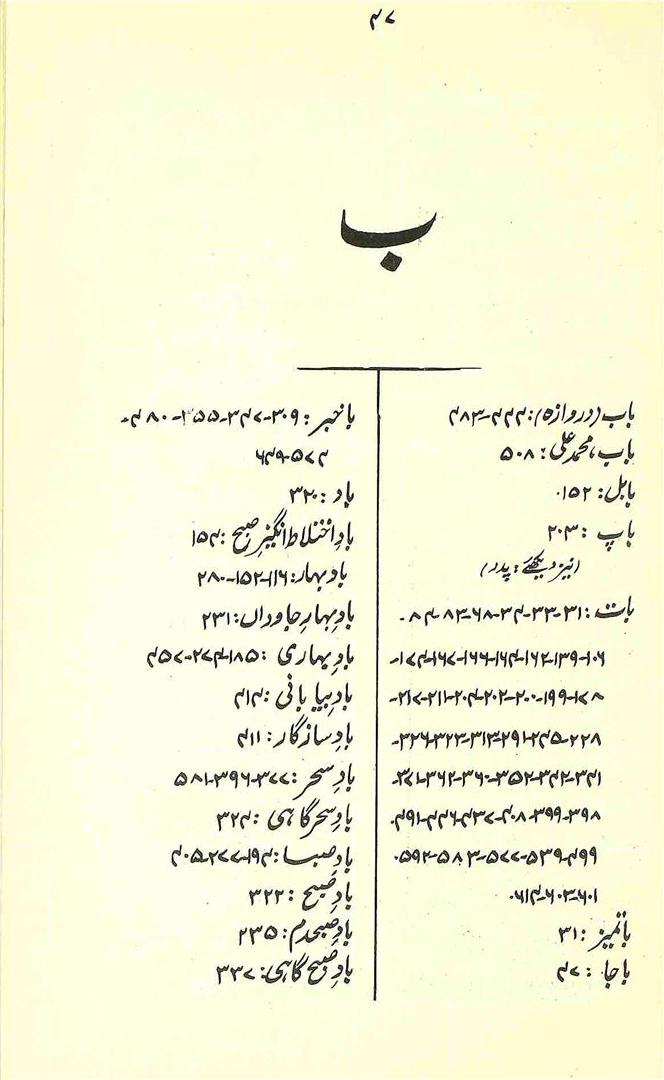 ۴۷
ب
باب (دروازہ): ۴۴۴-۴۸۳
باب، محمد علی: ۵۰۸
بابل: ۱۵۲
باپ: ۲۰۳
(نیز دیکھئے: پدر)
بات: ۳۱-۳۳-۳۴-۶۸-۸۲-۸۴-
۱۰۶-۱۳۹-۱۶۲-۱۶۴-۱۶۶-۱۶۷-۱۷۴-
۱۷۸-۱۹۹-۲۰۰-۲۰۲-۲۰۴-۲۱۱-۲۱۷-
۲۲۸-۲۴۵-۲۹۱-۳۱۳-۳۲۳-۳۲۶-
۳۴۱-۳۴۲-۳۵۲-۳۶۰-۳۶۲-۳۷۱-
۳۹۸-۳۹۹-۴۰۸-۴۳۷-۴۴۶-۴۹۱-
۴۹۹-۵۳۹-۵۷۷-۵۸۳-۵۹۲-
۶۰۱-۶۰۳-۶۱۴
باتمیز: ۳۱
باجا: ۴۷
باخبر: ۳۰۹-۳۴۷-۳۵۵-۴۸۰-
۴۷۵-۶۴۹
باد: ۳۲۰
بادِ اختلاط انگیزِ صبح: ۱۵۴
بادِ بہار: ۱۱۶-۱۵۲-۲۸۰
بادِ بہارِ جاوداں: ۲۳۱
بادِ بہاری: ۱۸۵-۲۷۴-۴۵۷
بادِ بیابانی: ۴۱۴
بادِ سازگار: ۴۱۱
بادِ سحر: ۳۷۷-۳۹۶-۵۸۱
بادِ سحرگاہی: ۳۲۴
بادِ صبا: ۱۹۴-۲۷۷-۴۰۵
بادِ صبح: ۳۲۲
بادِ صبحدم: ۲۳۵
بادِ صبح گاہی: ۳۳۷